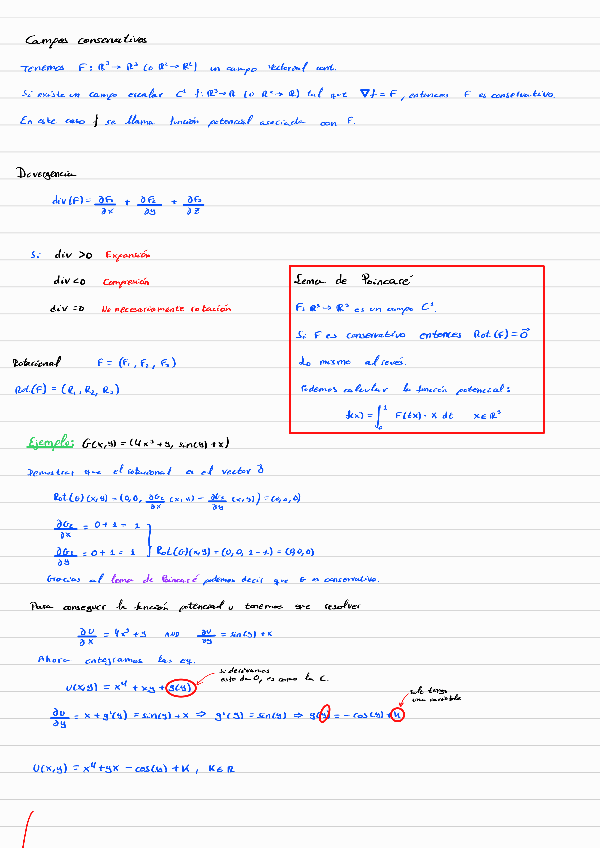 Campos conservativos
Tenemos F: ℝ³ → ℝ³ (o ℝ² → ℝ²) un campo vectorial cont.
Si existe un campo escalar C¹ f: ℝ³ → ℝ (o ℝ² → ℝ) tal que ∇f = F, entonces F es conservativo.
En este caso f se llama función potencial asociada con F.
Divergencia
div(F) = ∂F₁/∂x + ∂F₂/∂y + ∂F₃/∂z
Si div > 0 Expansión
div < 0 Compresión
div = 0 No necesariamente rotación
Rotacional F = (F₁, F₂, F₃)
Rot(F) = (R₁, R₂, R₃)
Lema de Poincaré
F: ℝ³ → ℝ³ es un campo C¹.
Si F es conservativo entonces Rot(F) = 0⃗
Lo mismo al revés.
Podemos calcular la función potencial:
f(x) = ∫₀¹ F(tx) · x dt x ∈ ℝ³
Ejemplo: G(x,y) = (4x³ + y, sin(y) + x)
Demostrar que el rotacional es el vector 0⃗
Rot(G)(x,y) = (0,0, ∂G₂/∂x (x,y) − ∂G₁/∂y (x,y)) = (0,0,0)
∂G₂/∂x = 0 + 1 = 1
∂G₁/∂y = 0 + 1 = 1 Rot(G)(x,y) = (0,0, 1−1) = (0,0,0)
Gracias al lema de Poincaré podemos decir que G es conservativo.
Para conseguir la función potencial u tenemos que resolver
∂U/∂x = 4x³ + y AND ∂U/∂y = sin(y) + x
Ahora integramos las ey.
si derivamos
esto da 0, es como la C.
U(x,y) = x⁴ + xy + g(y)
solo tengo
una variable
∂U/∂y = x + g'(y) = sin(y) + x ⇒ g'(y) = sin(y) ⇒ g(y) = −cos(y) + K
U(x,y) = x⁴ + yx − cos(y) + K, K ∈ ℝ